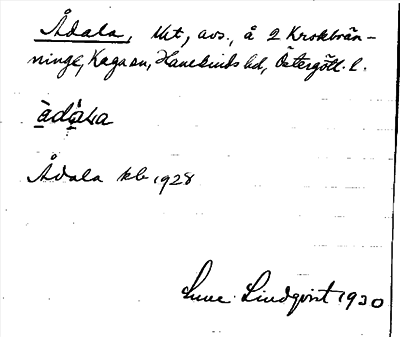 Ådala, lht, avs., å 2 Krokbrän-
ninge, Kaga sn, Hanekinds hd, Östergötl. l.
àdála
Ådala kb 1928
Sune Lindqvist 1930